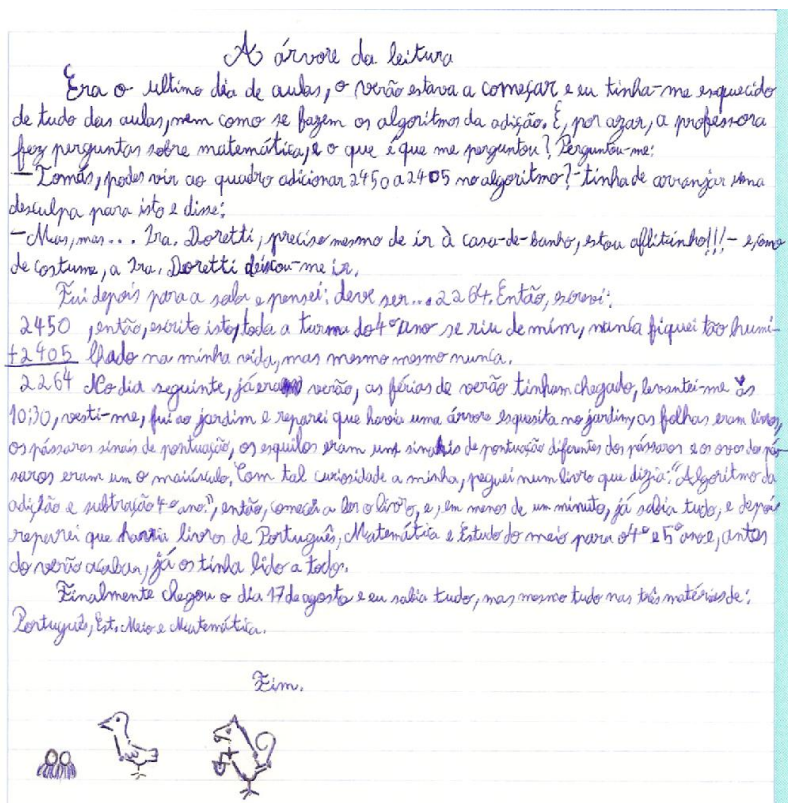 A árvore da leitura
Era o ultimo dia de aulas, o verão estava a começar e eu tinha-me esquecido
de tudo das aulas, nem como se fazem os algoritmos da adição. E, por azar, a professora
fez perguntas sobre matemática, e o que é que me perguntou? Perguntou-me:
— Tomás, podes vir ao quadro adicionar 2450 a 2405 no algoritmo? - tinha de arranjar uma
desculpa para isto e disse:
— Mas, mas... Sra. Doretti, preciso mesmo de ir à casa-de-banho, estou aflitinho!!! - e, como
de costume, a Sra. Doretti deixou-me ir.
Fui depois para a sala e pensei: deve ser... 2264. Então, escrevi:
2450 , então, escrito isto, toda a turma do 4º ano se riu de mim, nunca fiquei tão humi-
+2405 lhado na minha vida, mas mesmo mesmo nunca.
2264 No dia seguinte, já era verão, as férias de verão tinham chegado, levantei-me às
10:30, vesti-me, fui ao jardim e reparei que havia uma árvore esquesita no jardim, as folhas eram livros,
os pássaros sinais de pontuação, os esquilos eram uns sinais de pontuação diferentes dos pássaros e os ovos dos pás-
saros eram um o maiúsculo. Com tal curiosidade a minha, peguei num livro que dizia: "Algoritmo da
adição e subtração 4º ano.", então, comecei a ler o livro, e, em menos de um minuto, já sabia tudo, e depois
reparei que havia livros de Português, Matemática e Estudo do meio para o 4º e 5º ano e, antes
do verão acabar, já os tinha lido a todos.
Finalmente chegou o dia 17 de agosto e eu sabia tudo, mas mesmo tudo nas três matérias de:
Português, Est. Meio e Matemática.
Fim.